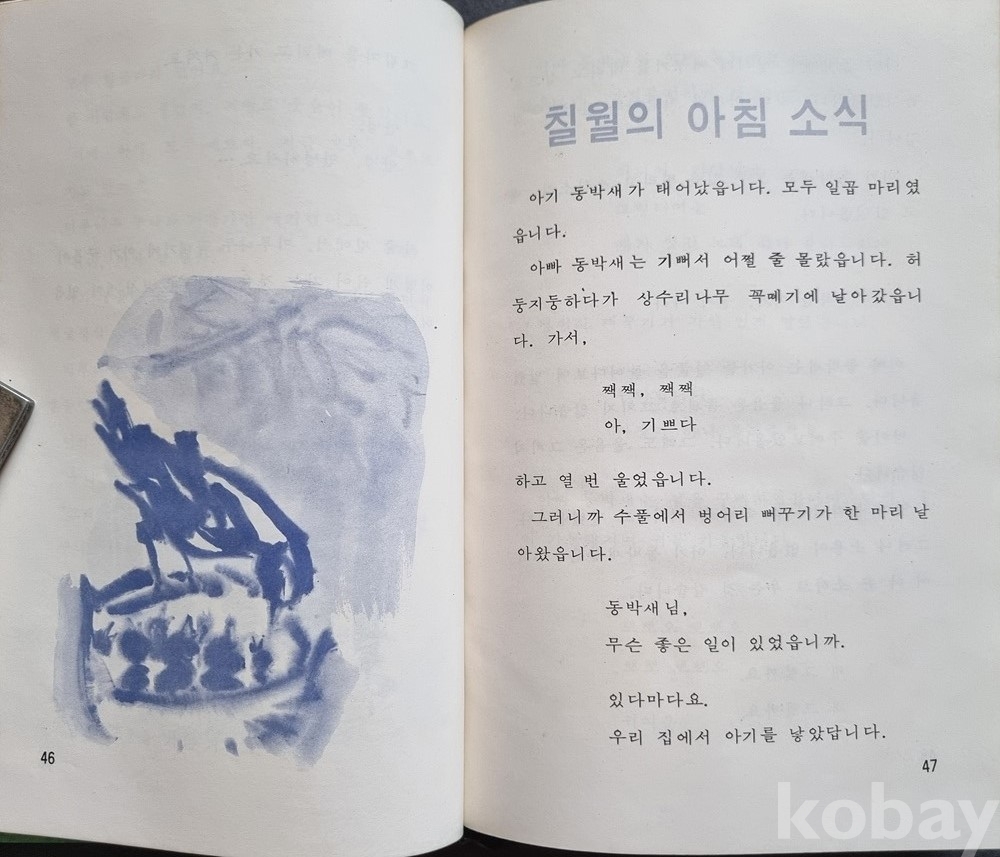 칠월의 아침 소식
아기 동박새가 태어났읍니다. 모두 일곱 마리였
읍니다.
아빠 동박새는 기뻐서 어쩔 줄 몰랐읍니다. 허
둥지둥하다가 상수리나무 꼭떼기에 날아갔읍니
다. 가서,
짹짹, 짹짹
아, 기쁘다
하고 열 번 울었읍니다.
그러니까 수풀에서 벙어리 뻐꾸기가 한 마리 날
아왔읍니다.
동박새님,
무슨 좋은 일이 있었읍니까.
있다마다요.
우리 집에서 아기를 낳았답니다.
46
47
kobay